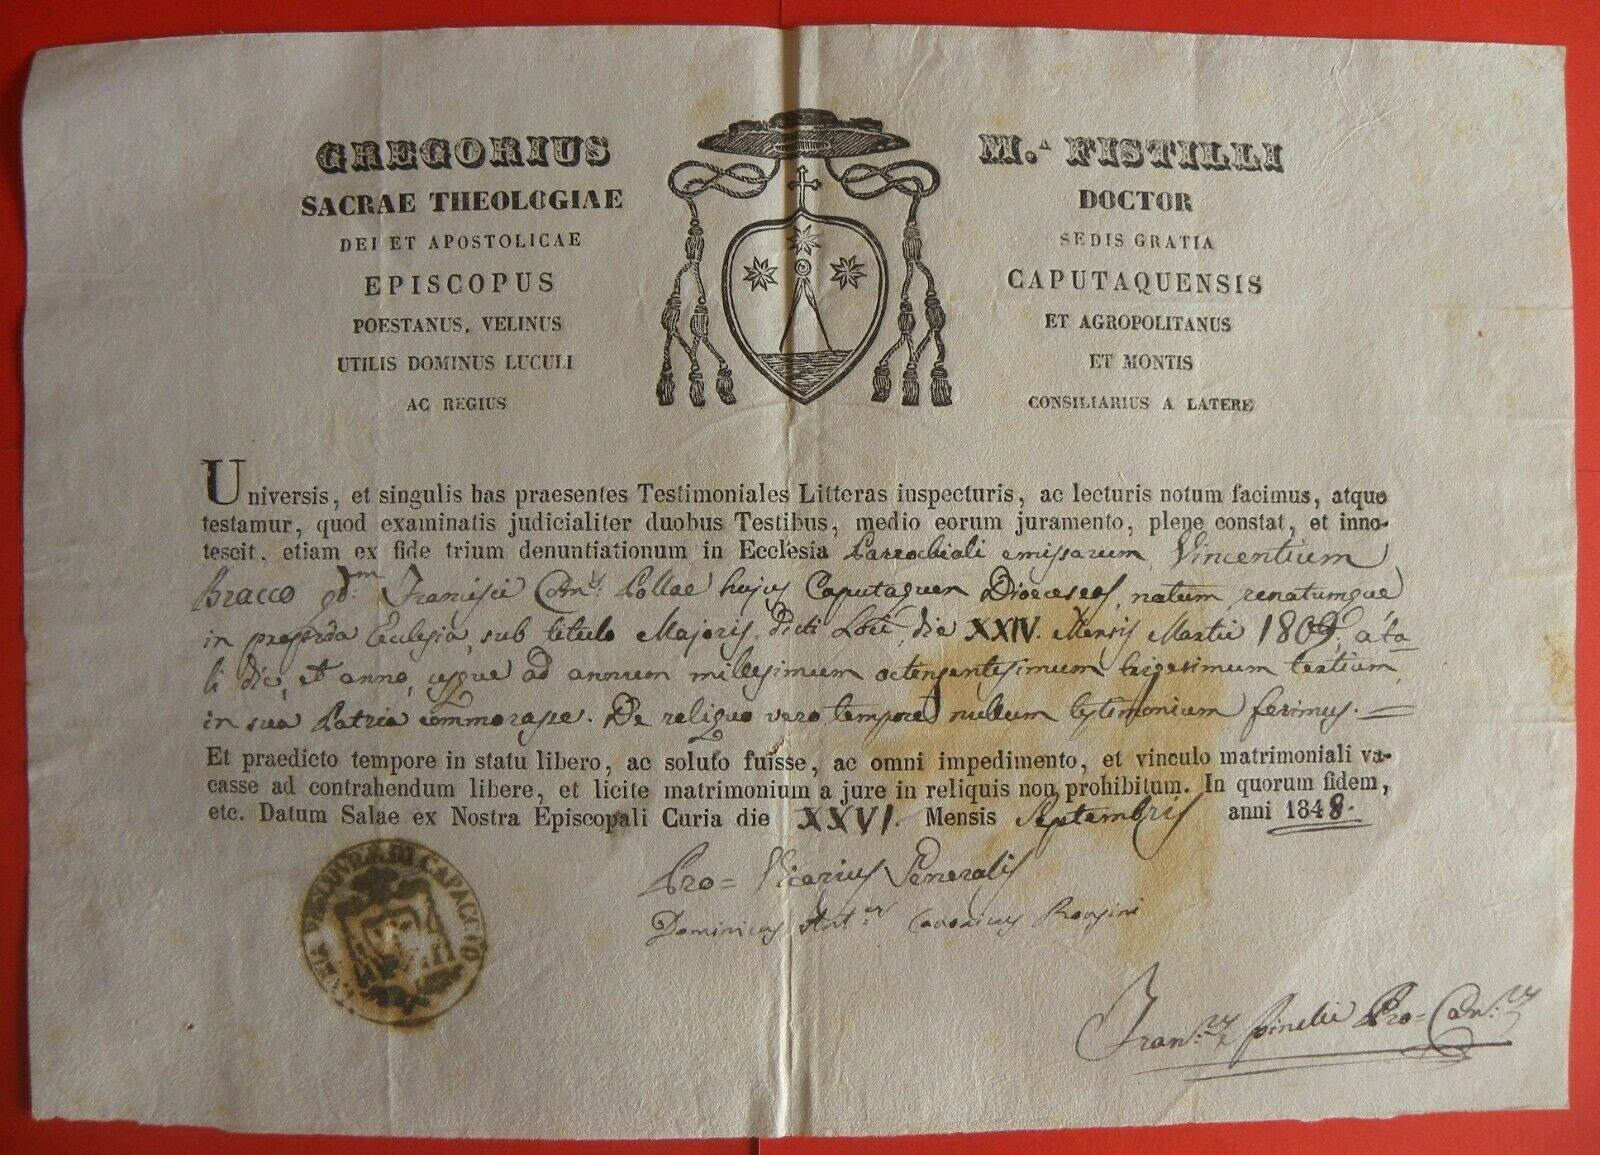 GREGORIUS M.A FISTILLI
SACRAE THEOLOGIAE DOCTOR
DEI ET APOSTOLICAE SEDIS GRATIA
EPISCOPUS CAPUTAQUENSIS
POESTANUS, VELINUS ET AGROPOLITANUS
UTILIS DOMINUS LUCULI ET MONTIS
AC REGIUS CONSILIARIUS A LATERE
Universis, et singulis has praesentes Testimoniales Litteras inspecturis, ac lecturis notum facimus, atque
testamur, quod examinatis judicialiter duobus Testibus, medio eorum juramento, plene constat, et inno-
tescit. etiam ex fide trium denuntiationum in Ecclesia Parrochiali emissarum, Vincentium
Bracco qdm. Francisci Pollae hujus Caputaquen Dioeceseos, natum, renatumque
in Ecclesia, sub titulo Majoris, dicti Loci, die XXIV. Mensis Martii 1809, a ta-
li die, et anno, usque ad annum millesimum octengentesimum trigesimum tertium,
in sua Patria commorasse. De reliquo vero tempore nullum testimonium ferimus. =
Et praedicto tempore in statu libero, ac soluto fuisse, ac omni impedimento, et vinculo matrimoniali va-
casse ad contrahendum libere, et licite matrimonium a jure in reliquis non prohibitum. In quorum fidem,
etc. Datum Salae ex Nostra Episcopali Curia die XXVI. Mensis Septembris anni 1848.
Pro= Vicarius Generalis
Dominicus Ant. Canonicus
CURIA VESCOVILE DI CAPACCIO
Pro=